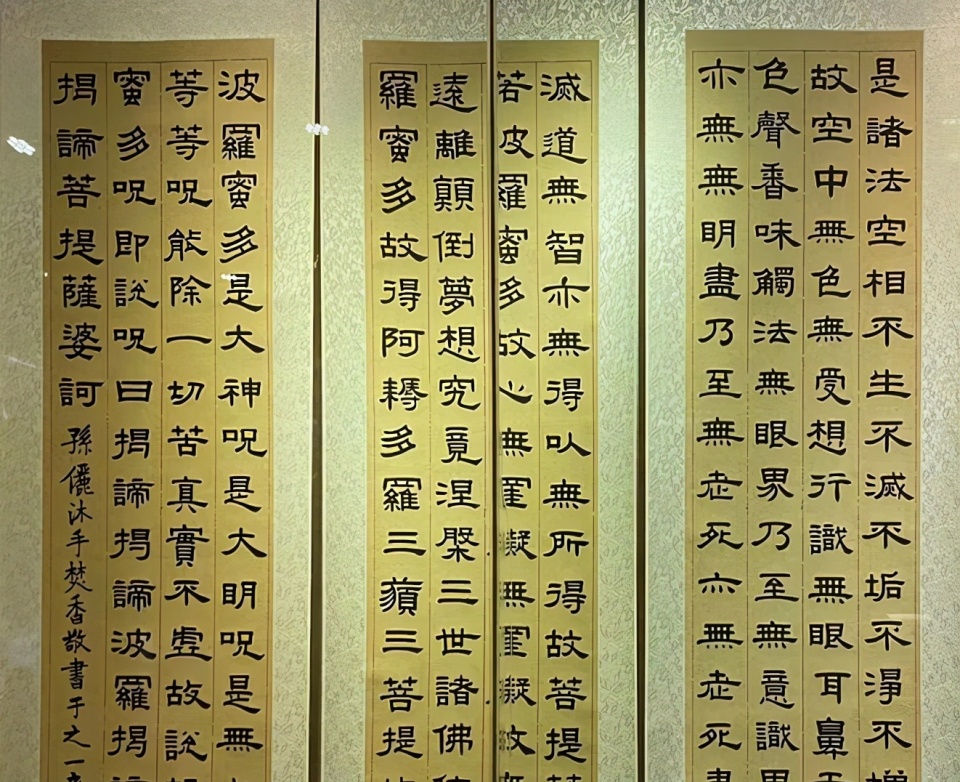 是諸法空相不生不滅不垢不淨不增
故空中無色無受想行識無眼耳鼻
色聲香味觸法無眼界乃至無意識界
亦無無明盡乃至無老死亦無老死盡
滅道無智亦無得以無所得故菩提
若波羅蜜多故心無罣礙無罣礙故無
遠離顛倒夢想究竟涅槃三世諸佛
羅蜜多故得阿耨多羅三藐三菩提
波羅蜜多是大神呪是大明呪是無
等等呪能除一切苦真實不虛故說
蜜多呪即說呪曰揭諦揭諦波羅揭
揭諦菩提薩婆訶
孫儷沐手焚香敬書于之一